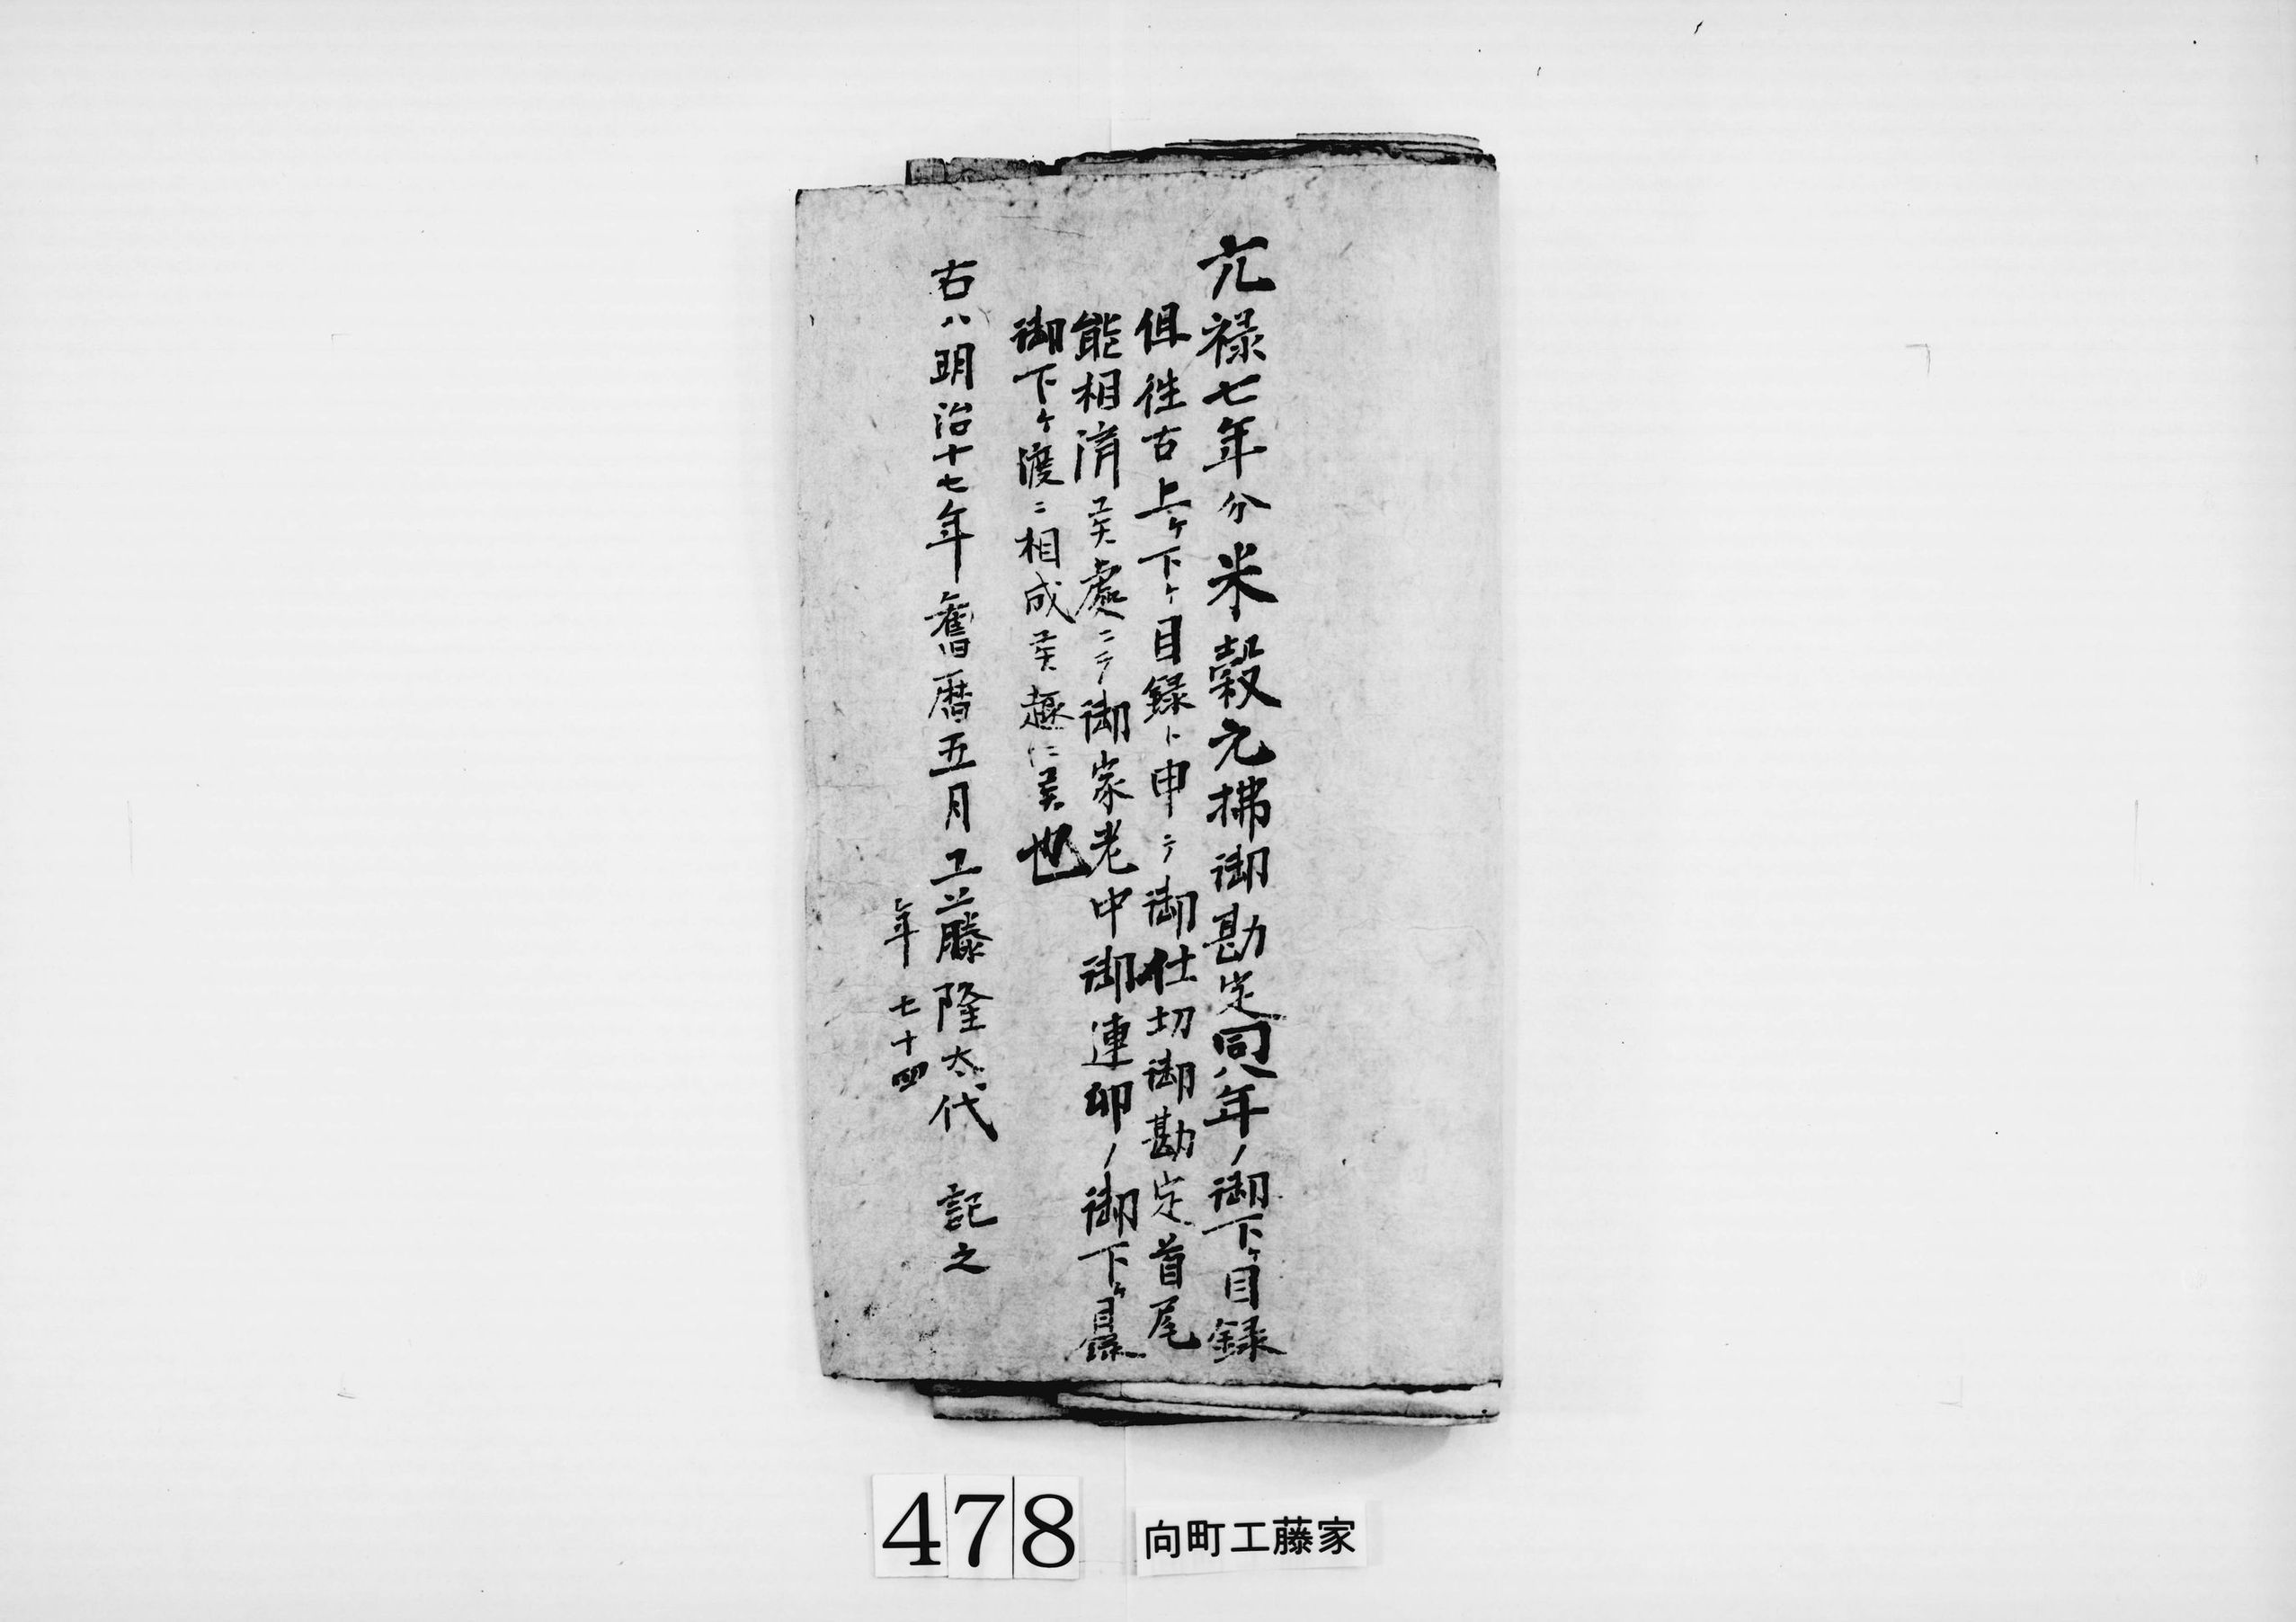 元禄七年分米穀元拂御勘定同八年ノ御下ケ目録
但往古上ケ下ケ目録ト申テ御仕切御勘定首尾
能相済候處ニテ御家老中御連印ノ御下ケ目録
御下ケ渡ニ相成候趣ニ候也
右ハ明治十七年舊暦五月工藤隆太代 記之
年 七十四
478
向町工藤家